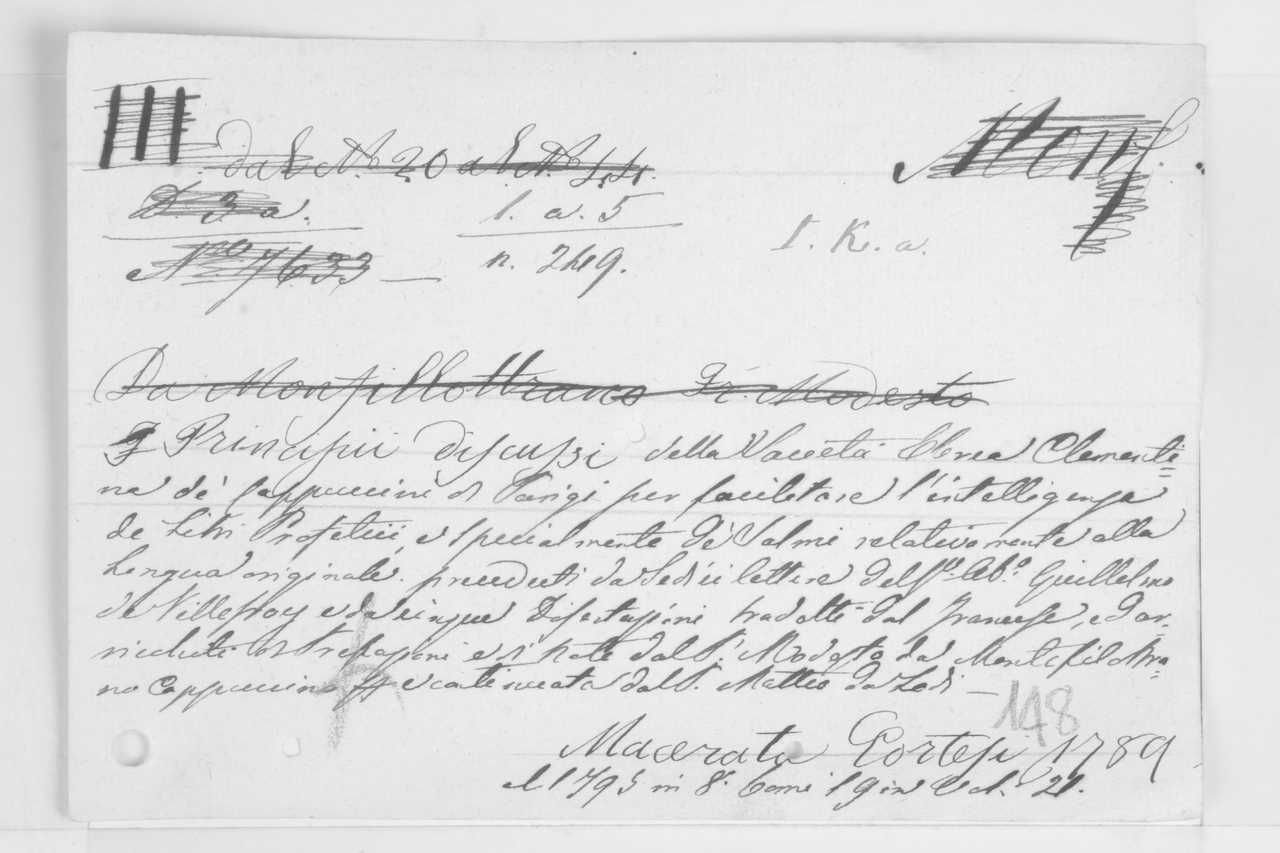 III
dal N.o 20 al N.o 44.
Monf.
D. 3 a.
1. a. 5
I. K. a.
N.ro 7633 —
n. 249.
Da Monfillottrano Fr. Modesto
Principii discussi della Società Ebrea Clementi=
na de' Cappuccini di Parigi per facilitare l'intelligenza
de Libri Profetici, e specialmente de' Salmi relativamente alla
Lengua originale. preceduti da Sedici lettere del Sr. Ab.e Guillelmo
de Villefroy e da cinque Dissertazioni tradotti dal Francese, ed ar=
ricchiti di Prefazioni e di Note dal P. Modesto da Montefilottra=
no Cappuccino e continuata dal P. Matteo da Lodi —
148
Macerata Cortesi 1789
al 1795 in 8. tomi 19 in Vol. 21.